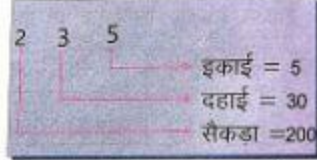 2 3 5
इकाई = 5
दहाई = 30
सैकडा =200